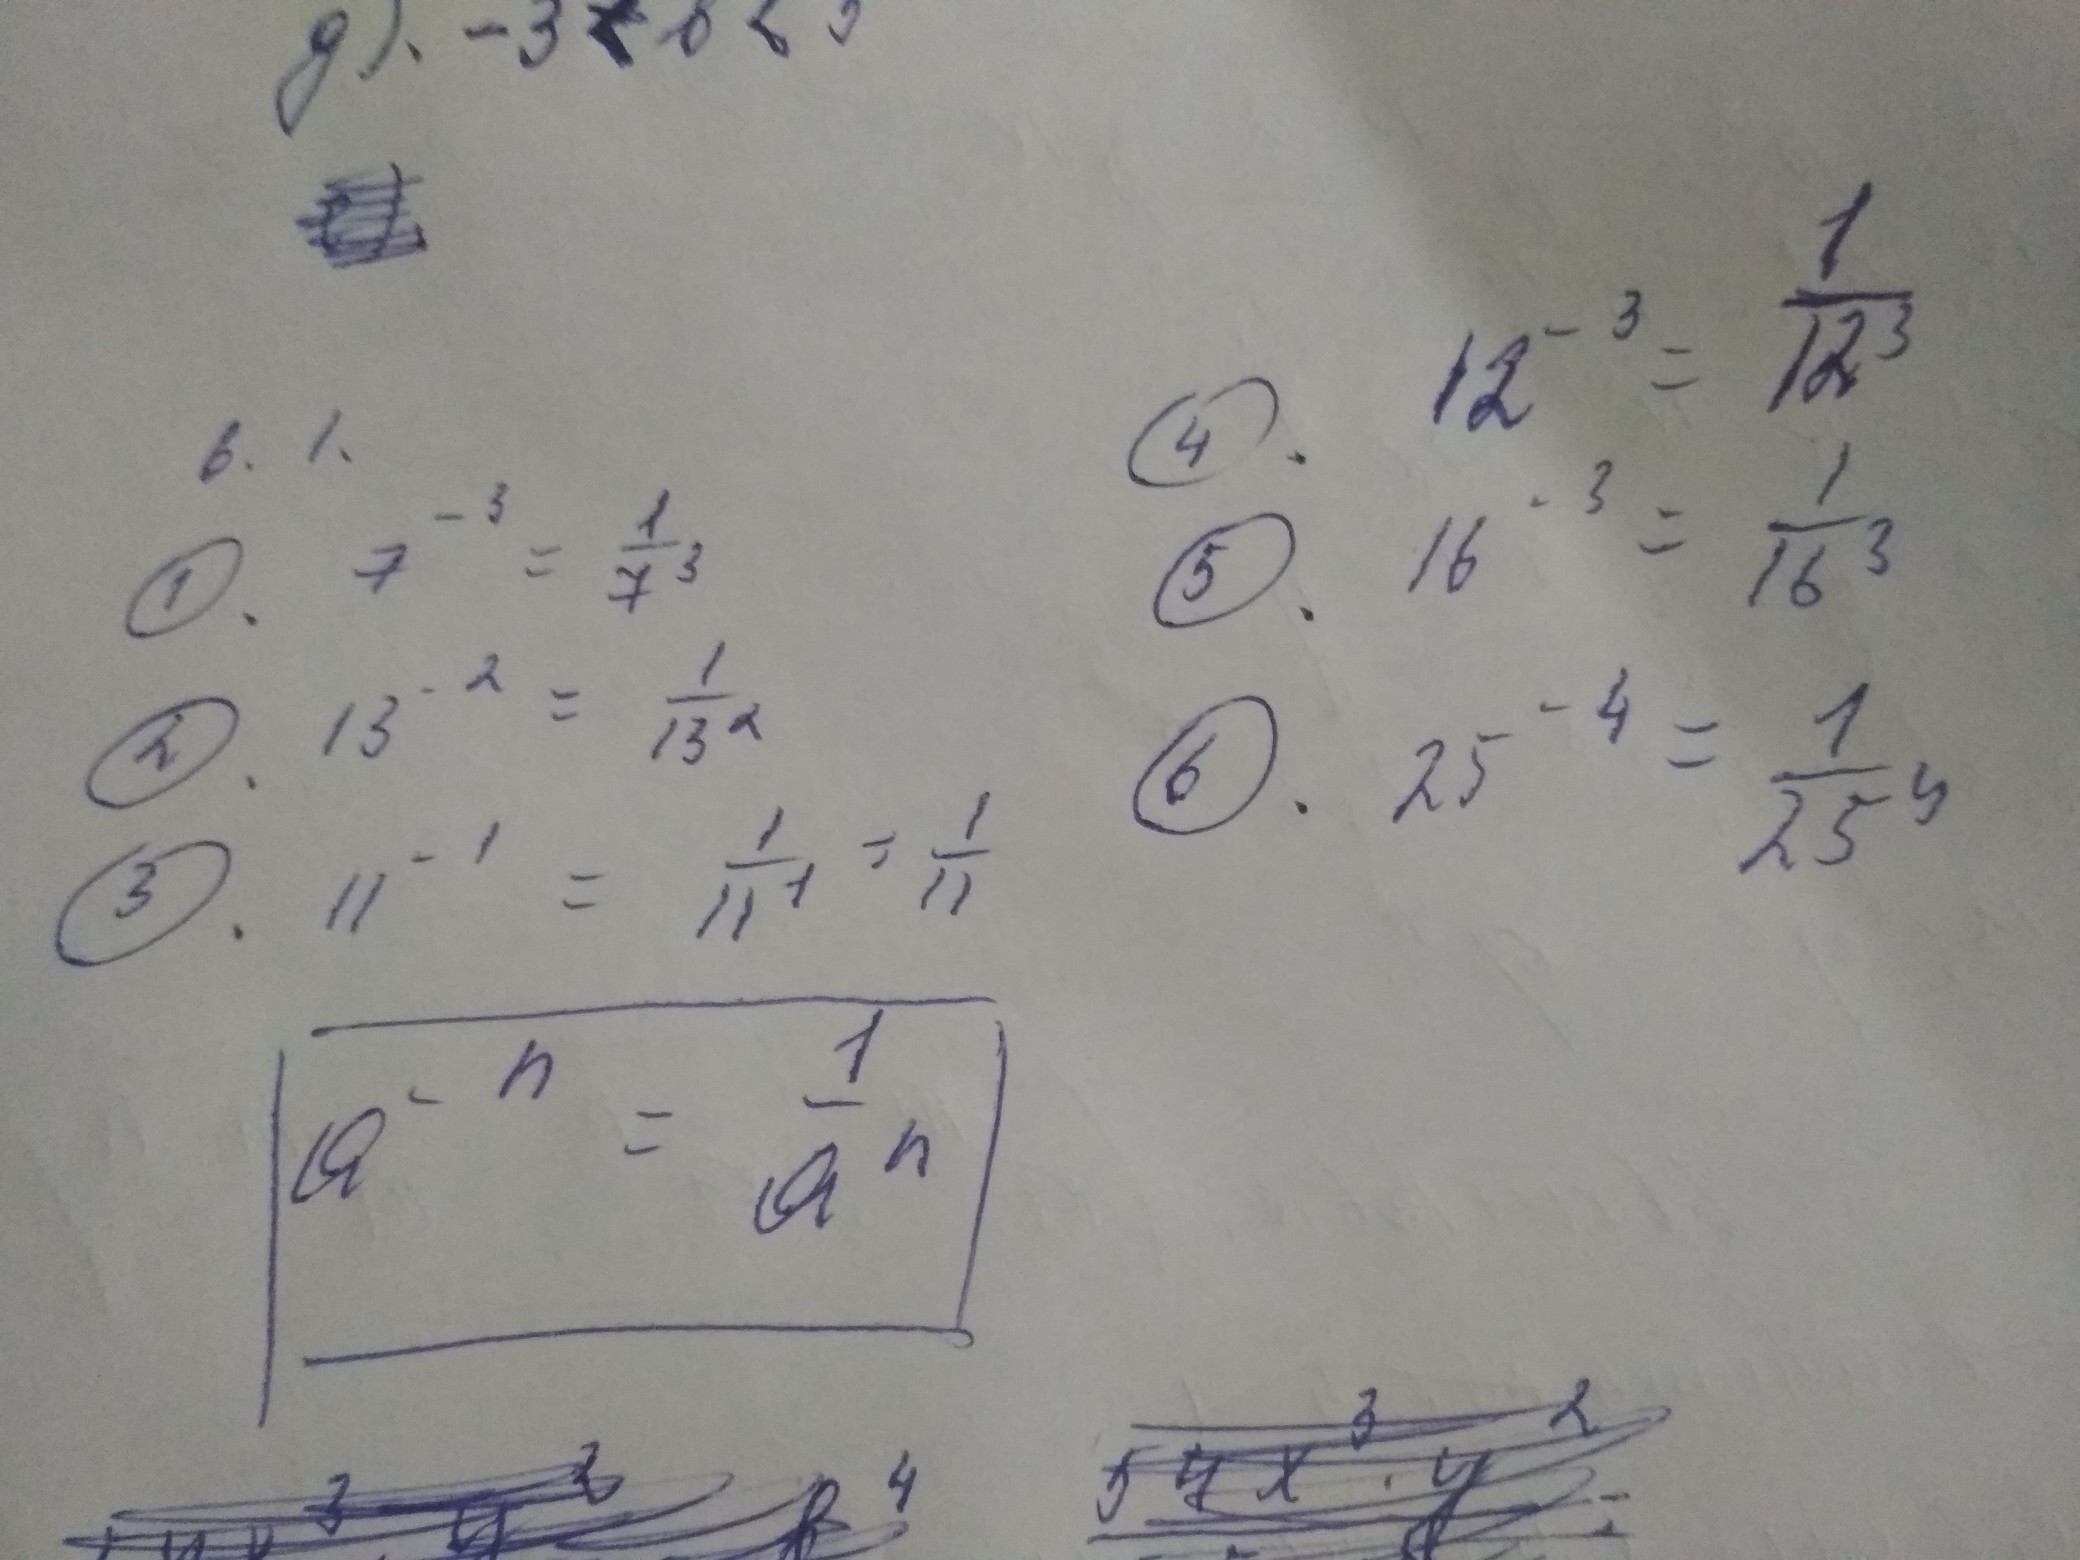 д). -3 < b <
в. 1.
①. 7⁻³ = 1/7³
②. 13⁻² = 1/13²
③. 11⁻¹ = 1/11¹ = 1/11
④. 12⁻³ = 1/12³
⑤. 16⁻³ = 1/16³
⑥. 25⁻⁴ = 1/25⁴
a⁻ⁿ = 1/aⁿ